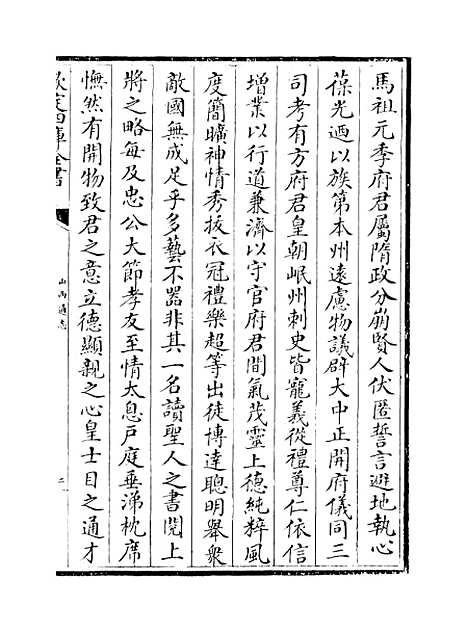 馬祖元季府君屬隋政分崩賢人伏匿誓言避地執心
葆光迺以族第本州遠慮物議辟大中正開府儀同三
司考有方府君皇朝岷州刺史皆寵義從禮尊仁依信
增業以行道兼濟以守官府君間氣茂靈上德純粹風
度簡曠神情秀拔衣冠禮樂超等出徒博達聰明舉衆
敵國無成足乎多藝不器非其一名讀聖人之書閱上
將之略每及忠公大節孝友至情太息戶庭垂涕枕席
憮然有開物致君之意立德顯親之心皇士目之通才
欽定四庫全書
山西通志
二